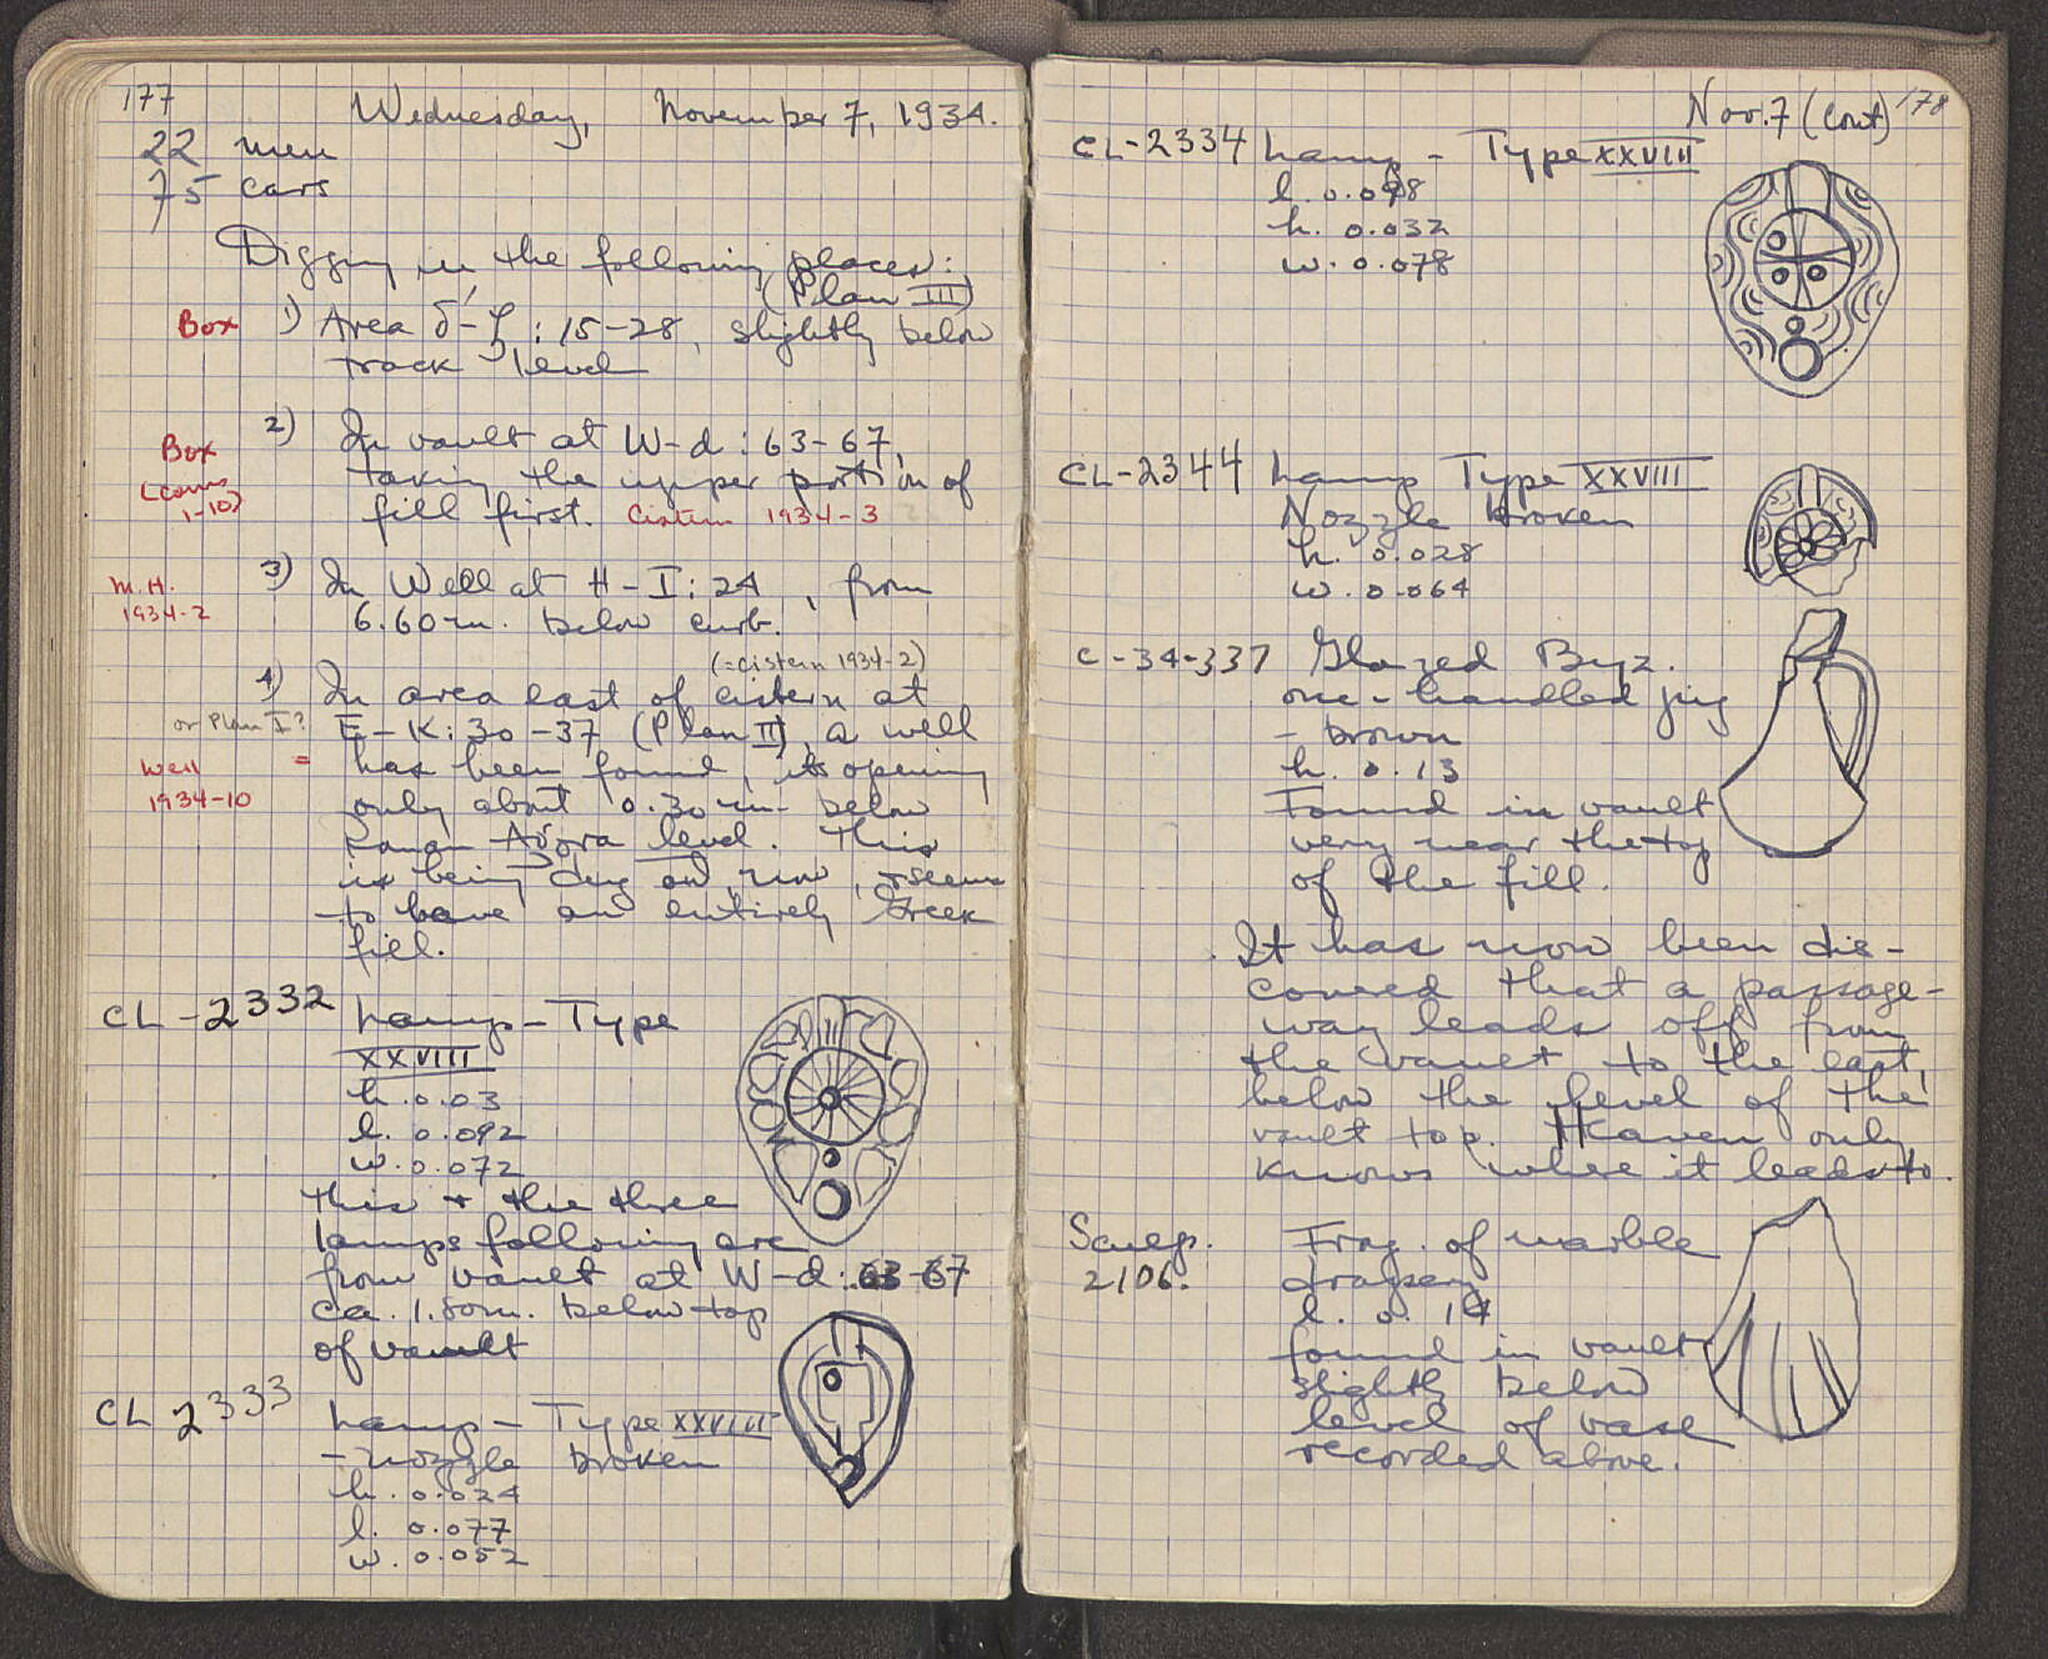 177
Wednesday, November 7, 1934.
22 men
75 cars
Digging in the following places:
(Plan III)
Box 1) Area δ'-ζ : 15-28, slightly below
track level
2) In vault at W-d : 63-67,
Box
taking the upper portion of
(coins
1-10)
fill first. Cistern 1934-3
3) In Well at H-I : 24, from
M.H.
1934-2
6.60 m. below curb.
(=cistern 1934-2)
4) In area east of cistern at
or Plan I? E-K : 30-37 (Plan II), a well
Well =
has been found, its opening
1934-10
only about 0.30 m. below
Agora level. This
is being dug out now, + seems
to have an entirely Greek
fill.
CL-2332 Lamp - Type
XXVIII
h. 0.03
l. 0.092
w. 0.072
This + the three
lamps following are
from vault at W-d : 63-67
ca. 1.80 m. below top
of vault
CL 2333 Lamp - Type XXVIII
- nozzle broken
h. 0.024
l. 0.077
w. 0.052
Nov. 7 (Cont) 178
CL-2334 Lamp - Type XXVIII
l. 0.098
h. 0.032
w. 0.078
CL-2344 Lamp Type XXVIII
Nozzle broken
h. 0.028
w. 0.064
C-34-337 Glazed Byz.
one-handled jug
- brown
h. 0.13
Found in vault
very near the top
of the fill.
It has now been dis-
covered that a passage-
way leads off from
the vault to the east,
below the level of the
vault top. Heaven only
knows where it leads to.
Sculp.
2106.
Frag. of marble
drapery
l. 0.14
found in vault
slightly below
level of vase
recorded above.